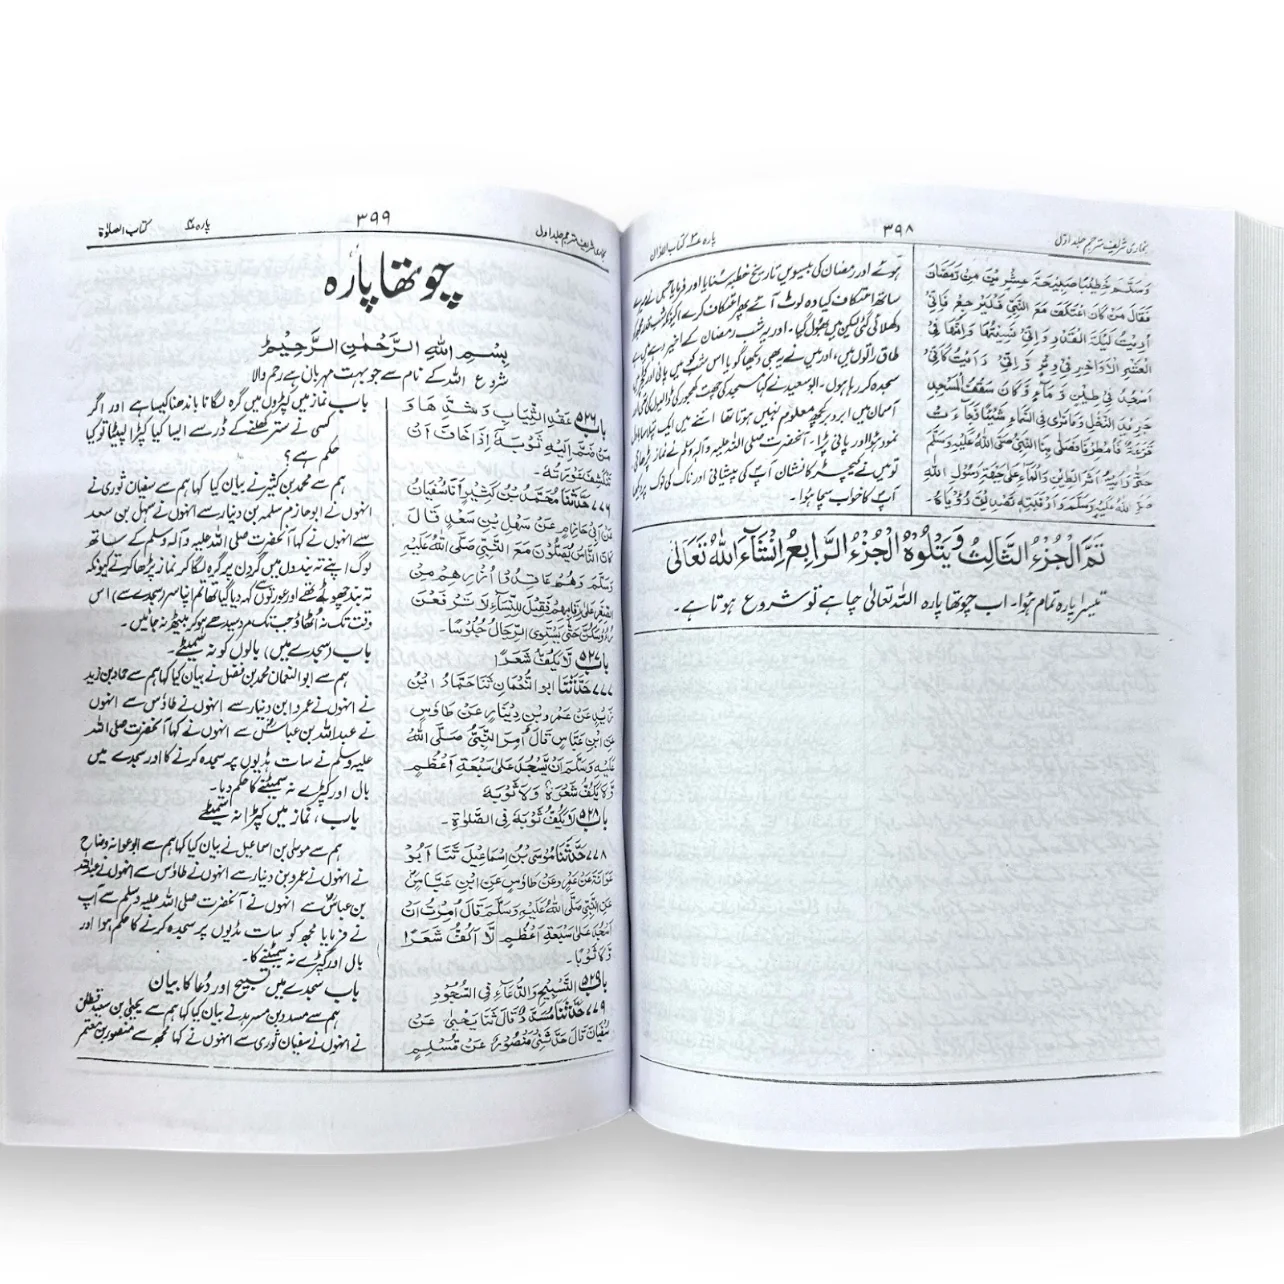 بخاری شریف مترجم جلد اول
۳۹۸
پارہ ۳ کتاب الاذان
وَسَلَّمَ خَطِيْبًا صَبِيْحَةَ عِشْرِيْنَ مِنْ رَمَضَانَ
فَقَالَ مَنْ كَانَ اعْتَكَفَ مَعَ النَّبِيِّ فَلْيَرْجِعْ فَإِنِّيْ
أُرِيْتُ لَيْلَةَ الْقَدْرِ وَإِنِّيْ نَسِيْتُهَا وَإِنَّهَا فِي
الْعَشْرِ الْأَوَاخِرِ فِيْ وِتْرٍ وَإِنِّيْ رَأَيْتُ كَأَنِّيْ
أَسْجُدُ فِيْ طِيْنٍ وَمَاءٍ وَكَانَ سَقْفُ الْمَسْجِدِ
جَرِيْدَ النَّخْلِ وَمَا نَرٰى فِي السَّمَاءِ شَيْئًا فَجَاءَتْ
قَزْعَةٌ فَأُمْطِرْنَا فَصَلّٰى بِنَا النَّبِيُّ صَلَّى اللهُ عَلَيْهِ وَسَلَّمَ
حَتّٰى رَأَيْتُ أَثَرَ الطِّيْنِ وَالْمَاءِ عَلٰى جَبْهَةِ رَسُوْلِ اللهِ
صَلَّى اللهُ عَلَيْهِ وَسَلَّمَ وَأَرْنَبَتِهٖ تَصْدِيْقَ رُؤْيَاهُ۔
ہوئے اور رمضان کی بیسویں تاریخ خطبہ سنایا اور فرمایا جس نے میرے
ساتھ اعتکاف کیا وہ لوٹ آئے پھر اعتکاف کرے کیونکہ شب قدر مجھے
دکھلائی گئی لیکن میں بھول گیا۔ اور یہ شب رمضان کے اخیر دہے میں ہے
طاق راتوں میں، اور میں نے یہ بھی دیکھا گویا اس شب کو میں پانی اور کیچڑ میں
سجدہ کر رہا ہوں۔ ابوسعید نے کہا مسجد کی چھت کھجور کی ڈالیوں کی تھی اور
آسمان میں ابر وغیرہ کچھ معلوم نہیں ہوتا تھا اتنے میں ایک پتلا سا بادل
نمودار ہوا اور پانی پڑا۔ آنحضرت صلی اللہ علیہ وآلہ وسلم نے نماز پڑھائی
تو میں نے کیچڑ کا نشان آپ کی پیشانی اور ناک کی نوک پر دیکھا
آپ کا خواب سچا ہوا۔
تَمَّ الْجُزْءُ الثَّالِثُ وَيَتْلُوْهُ الْجُزْءُ الرَّابِعُ اِنْشَآءَ اللهُ تَعَالٰی
تیسرا پارہ تمام ہوا۔ اب چوتھا پارہ اللہ تعالیٰ چاہے تو شروع ہوتا ہے۔
بخاری شریف مترجم جلد اول
۳۹۹
پارہ ۴
کتاب الصلوٰۃ
چوتھا پارہ
بِسْمِ اللهِ الرَّحْمٰنِ الرَّحِيْمِ
شروع اللہ کے نام سے جو بہت مہربان ہے رحم والا
باب ۵۲۶ عَقْدِ الثِّيَابِ وَشَدِّهَا وَ
مَنْ ضَمَّ إِلَيْهِ ثَوْبَهٗ إِذَا خَافَ أَنْ
تَنْكَشِفَ عَوْرَتُهٗ۔
۷۷۶ حَدَّثَنَا مُحَمَّدُ بْنُ كَثِيْرٍ أَنَا سُفْيَانُ
عَنْ أَبِيْ حَازِمٍ عَنْ سَهْلِ بْنِ سَعْدٍ قَالَ
كَانَ النَّاسُ يُصَلُّوْنَ مَعَ النَّبِيِّ صَلَّى اللهُ عَلَيْهِ
وَسَلَّمَ وَهُمْ عَاقِدُوْا أُزُرِهِمْ مِنَ
الصِّغَرِ عَلٰى رِقَابِهِمْ فَقِيْلَ لِلنِّسَاءِ لَا تَرْفَعْنَ
رُءُوْسَكُنَّ حَتّٰى يَسْتَوِيَ الرِّجَالُ جُلُوْسًا
باب ۵۲۷ لَا يَكُفُّ شَعَرًا
۷۷۷ حَدَّثَنَا أَبُو النُّعْمَانِ ثَنَا حَمَّادُ ابْنُ
زَيْدٍ عَنْ عَمْرِو بْنِ دِيْنَارٍ عَنْ طَاؤُسٍ
عَنِ ابْنِ عَبَّاسٍ قَالَ أُمِرَ النَّبِيُّ صَلَّى اللهُ
عَلَيْهِ وَسَلَّمَ أَنْ يَّسْجُدَ عَلٰى سَبْعَةِ أَعْظُمٍ
وَّلَا يَكُفَّ شَعَرَهٗ وَلَا ثَوْبَهٗ
باب ۵۲۸ لَا يَكُفُّ ثَوْبَهٗ فِي الصَّلَاةِ۔
۷۷۸ حَدَّثَنَا مُوْسَى بْنُ إِسْمَاعِيْلَ ثَنَا أَبُوْ
عَوَانَةَ عَنْ عَمْرٍو عَنْ طَاؤُسٍ عَنِ ابْنِ عَبَّاسٍ
عَنِ النَّبِيِّ صَلَّى اللهُ عَلَيْهِ وَسَلَّمَ قَالَ أُمِرْتُ أَنْ
أَسْجُدَ عَلٰى سَبْعَةِ أَعْظُمٍ لَّا أَكُفُّ شَعَرًا
وَّلَا ثَوْبًا۔
باب ۵۲۹ التَّسْبِيْحِ وَالدُّعَاءِ فِي السُّجُوْدِ
۷۷۹ حَدَّثَنَا مُسَدَّدٌ قَالَ ثَنَا يَحْيٰى عَنْ
سُفْيَانَ قَالَ حَدَّثَنِيْ مَنْصُوْرٌ عَنْ مُسْلِمٍ
باب نماز میں کپڑوں میں گرہ لگانا باندھنا کیسا ہے اور اگر
کسی نے ستر کھلنے کے ڈر سے ایسا کیا کپڑا لپیٹا تو کیا
حکم ہے؟
ہم سے محمد بن کثیر نے بیان کیا کہا ہم سے سفیان ثوری نے
انہوں نے ابوحازم سلمہ بن دینار سے انہوں نے سہل بن سعد
سے انہوں نے کہا آنحضرت صلی اللہ علیہ وآلہ وسلم کے ساتھ
لوگ اپنے تہ بندوں میں گردن پر گرہ لگا کر نماز پڑھا کرتے کیونکہ
تہ بند چھوٹے تھے اور عورتوں سے کہہ دیا گیا تھا تم اپنا سر (سجدے سے) اس
وقت تک نہ اٹھاؤ جب تک مرد سیدھے ہو کر بیٹھ نہ جائیں۔
باب (سجدے میں) بالوں کو نہ سمیٹے۔
ہم سے ابو النعمان محمد بن فضل نے بیان کیا کہا ہم سے حماد بن زید
نے انہوں نے عمرو ابن دینار سے انہوں نے طاؤس سے انہوں
نے عبداللہ بن عباسؓ سے انہوں نے کہا آنحضرت صلی اللہ
علیہ وسلم نے سات ہڈیوں پر سجدہ کرنے کا اور سجدے میں
بال اور کپڑے نہ سمیٹنے کا حکم دیا۔
باب، نماز میں کپڑا نہ سمیٹے
ہم سے موسیٰ بن اسماعیل نے بیان کیا کہا ہم سے ابوعوانہ وضاح
نے انہوں نے عمرو بن دینار سے انہوں نے طاؤس سے انہوں نے عبداللہ
بن عباسؓ سے انہوں نے آنحضرت صلی اللہ علیہ وسلم سے آپ
نے فرمایا مجھ کو سات ہڈیوں پر سجدہ کرنے کا حکم ہوا اور
بال اور کپڑے نہ سمیٹنے کا۔
باب سجدے میں تسبیح اور دعا کا بیان
ہم سے مسدد بن مسرہد نے بیان کیا کہا ہم سے یحییٰ بن سعید قطان
نے انہوں نے سفیان ثوری سے انہوں نے کہا مجھ سے منصور بن معتمر